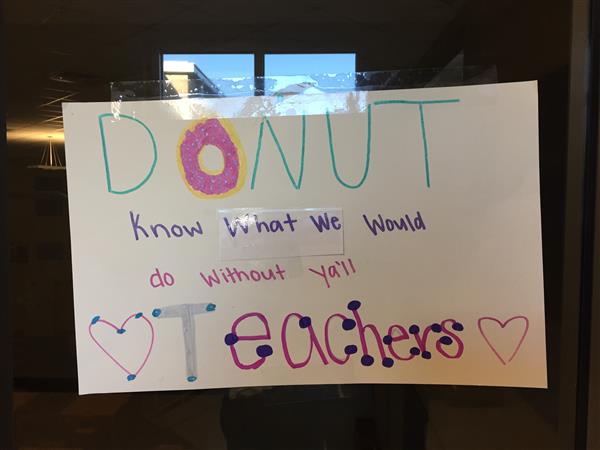 DONUT
Know What We Would
do Without ya'll
Teachers